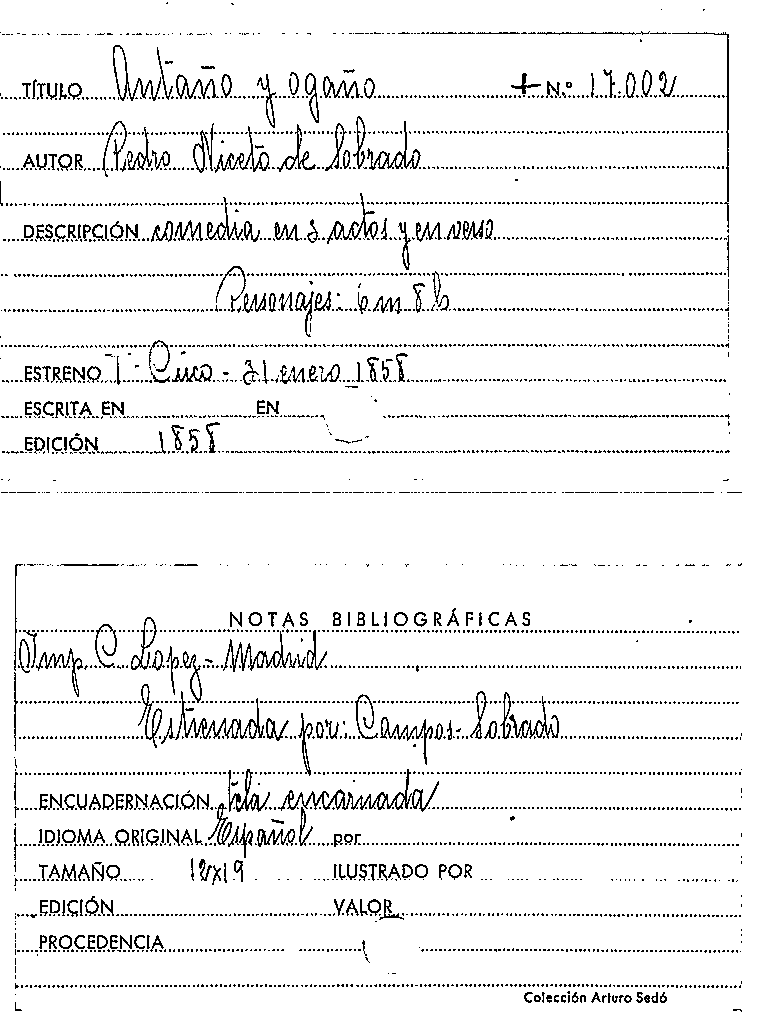 TÍTULO Antaño y ogaño + N.º 17.002
AUTOR Pedro Niceto de Sobrado
DESCRIPCIÓN comedia en 3 actos y en verso
Personajes: 6 m 8 h
ESTRENO Tº Circo - 21 enero 1858
ESCRITA EN EN
EDICIÓN 1858
NOTAS BIBLIOGRÁFICAS
Imp C. Lopez - Madrid
Estrenada por: Campos - Sobrado
ENCUADERNACIÓN tela encarnada
IDIOMA ORIGINAL Español por
TAMAÑO 12x19 ILUSTRADO POR
EDICIÓN VALOR
PROCEDENCIA
Colección Arturo Sedó